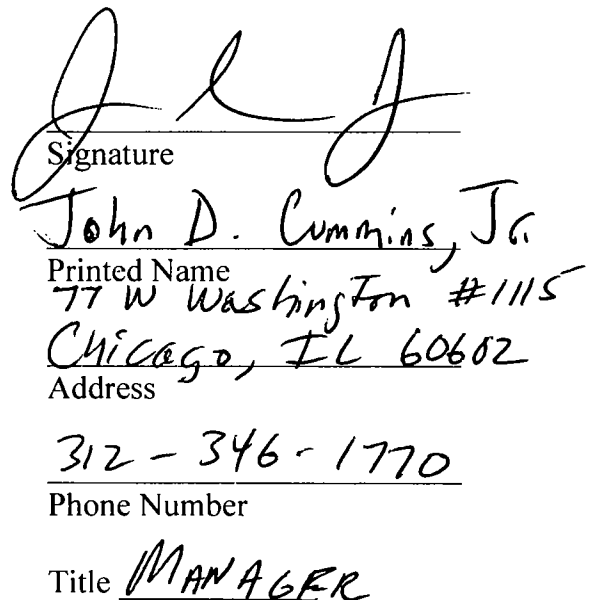 Signature
John D. Cummins, Jr.
Printed Name
77 W Washington #1115
Chicago, IL 60602
Address
312-346-1770
Phone Number
Title MANAGER